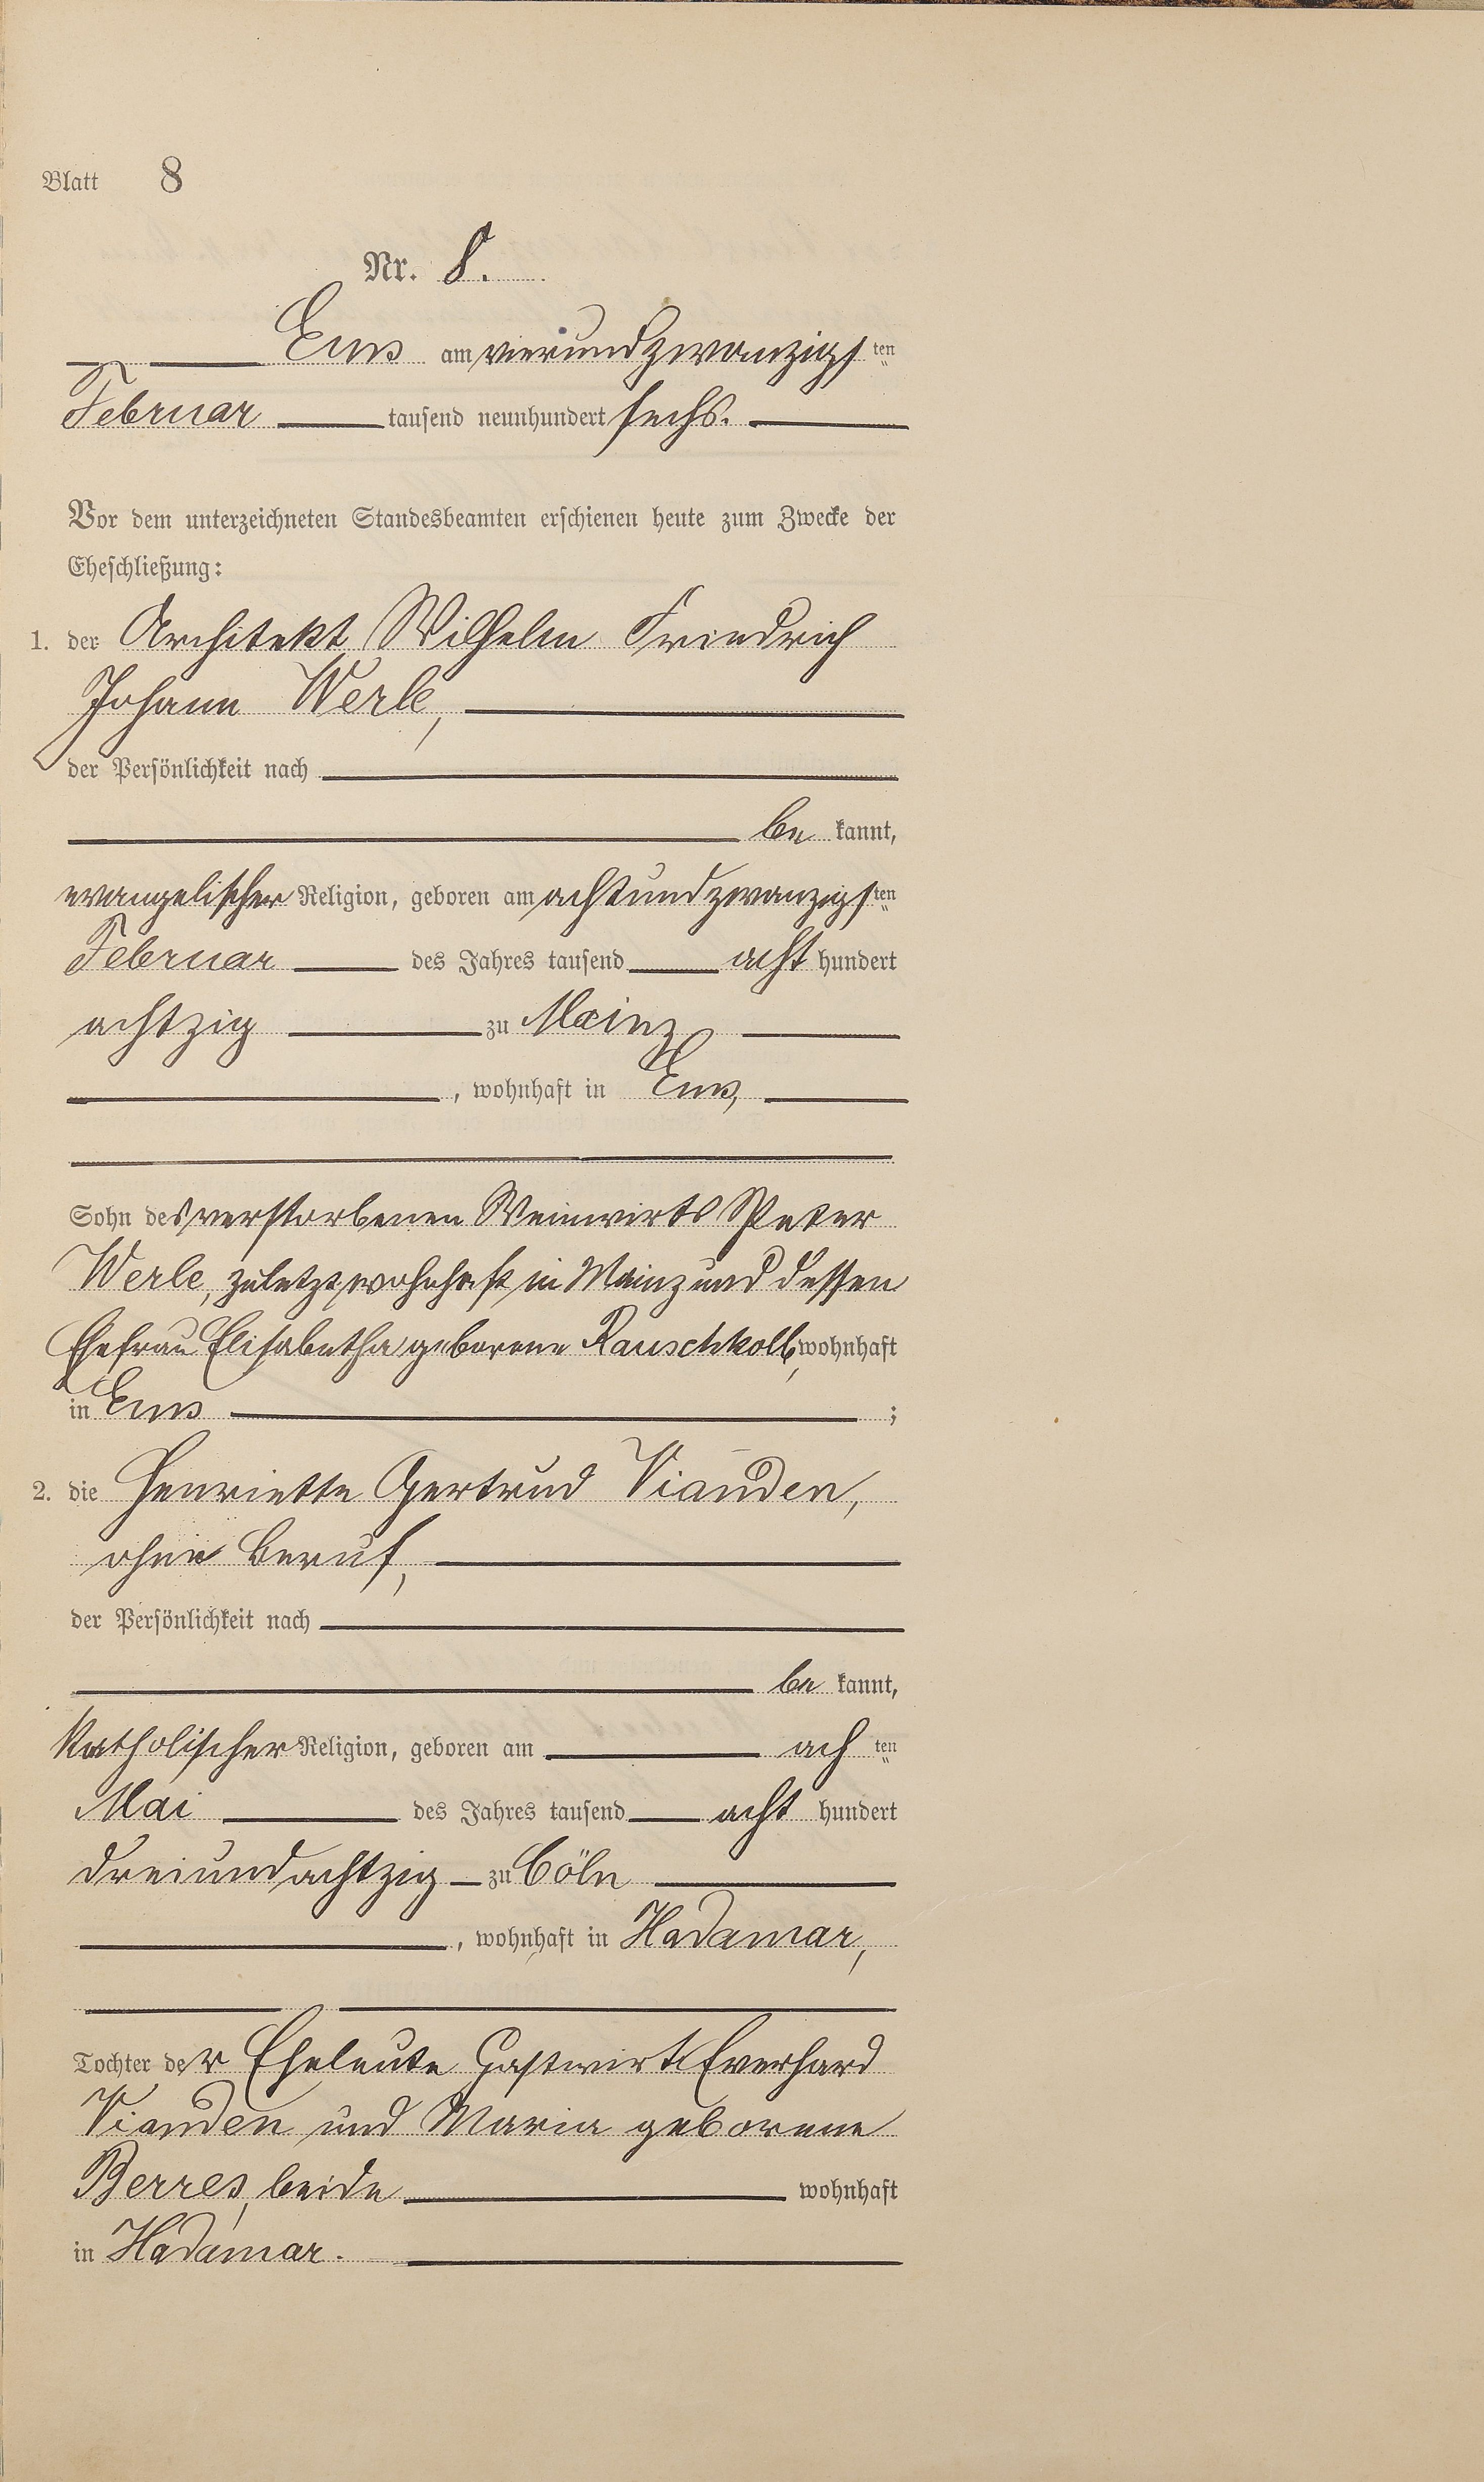 Blatt 8
Nr. 8.
Ems am vierundzwanzigsten
Februar tausend neunhundert sechs.
Vor dem unterzeichneten Standesbeamten erschienen heute zum Zwecke der
Eheschließung:
1. der Architekt Wilhelm Friedrich
Johann Werle,
der Persönlichkeit nach
be kannt,
evangelischer Religion, geboren am achtundzwanzigsten
Februar des Jahres tausend acht hundert
achtzig zu Mainz
, wohnhaft in Ems,
Sohn des verstorbenen Weinwirts Peter
Werle, zuletzt wohnhaft in Mainz und dessen
Ehefrau Elisabetha geborene Rauschkolb, wohnhaft
in Ems ;
2. die Henriette Gertrud Vianden,
ohne Beruf,
der Persönlichkeit nach
be kannt,
katholischer Religion, geboren am achten
Mai des Jahres tausend acht hundert
dreiundachtzig zu Cöln
, wohnhaft in Hadamar,
Tochter der Eheleute Gastwirt Everhard
Vianden und Maria geborene
Berres, beide wohnhaft
in Hadamar.